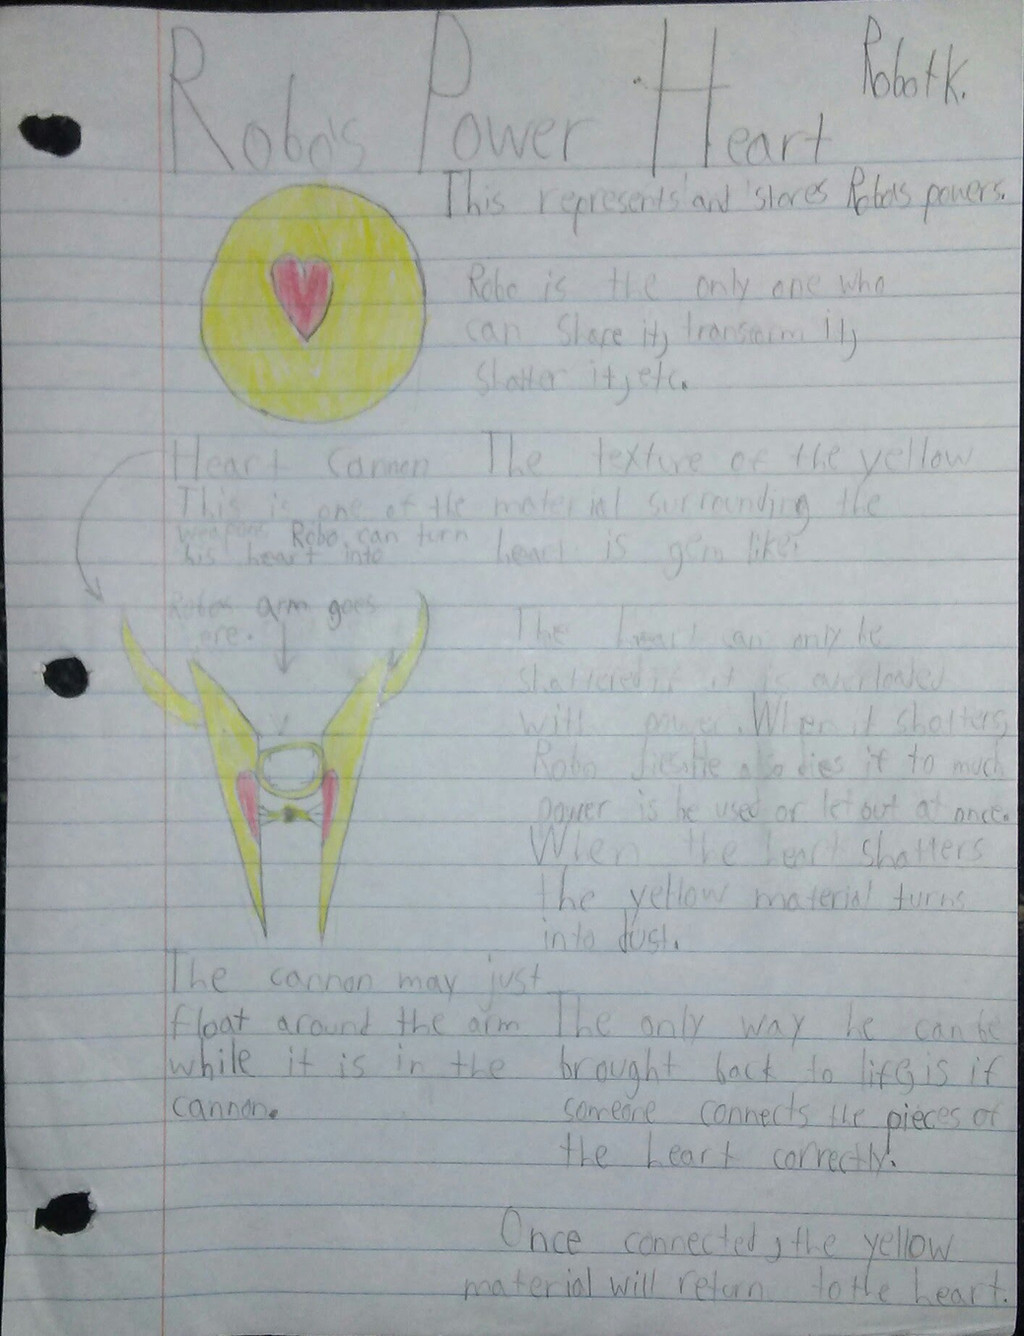 Robo's Power Heart
Robot K.
This represents and stores Robo's powers.
Robo is the only one who
can shape it, transform it,
shatter it, etc.
Heart Cannon
This is one of the
weapons Robo can turn
his heart into
The texture of the yellow
material surrounding the
heart is gem like.
Robo's arm goes
here.
The heart can only be
shattered if it is overloaded
with power. When it shatters,
Robo dies. He also dies if to much
power is he used or let out at once.
When the heart shatters
the yellow material turns
into dust.
The cannon may just
float around the arm
while it is in the
cannon.
The only way he can be
brought back to life, is if
someone connects the pieces of
the heart correctly.
Once connected, the yellow
material will return to the heart.